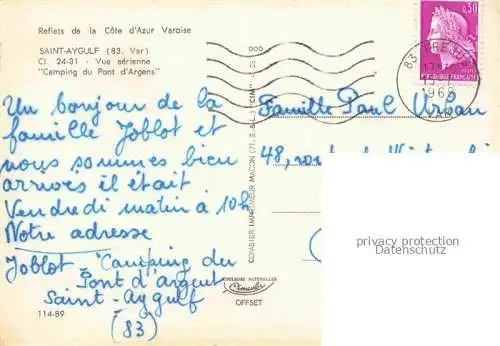 Reflets de la Côte d'Azur Varoise
SAINT-AYGULF (83. Var)
Cl. 24-31 - Vue aérienne
"Camping du Pont d'Argens"
0,30
FRANÇAISE
83 FREJUS
1968
VAR
Un bonjour de la
famille Joblot et
nous sommes bien
arrivés il était
Vendredi matin à 10h
Notre adresse
Joblot - Camping du
Pont d'argent
Saint-Aygulf
(83)
114-89
COMBIER IMPRIMEUR MACON (71. S.-&-L.) "CIM"
COULEURS NATURELLES
Cimcolor
OFFSET
Famille Paul Urban
48,
(
privacy protection
Datenschutz